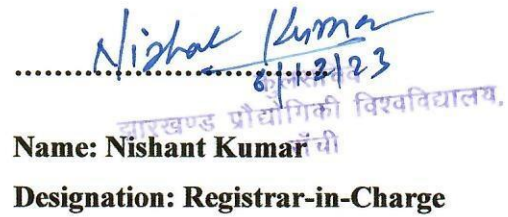 Nishat Kumar
6/12/23
कुलसचिव
झारखण्ड प्रौद्योगिकी विश्वविद्यालय,
राँची
Name: Nishant Kumar
Designation: Registrar-in-Charge